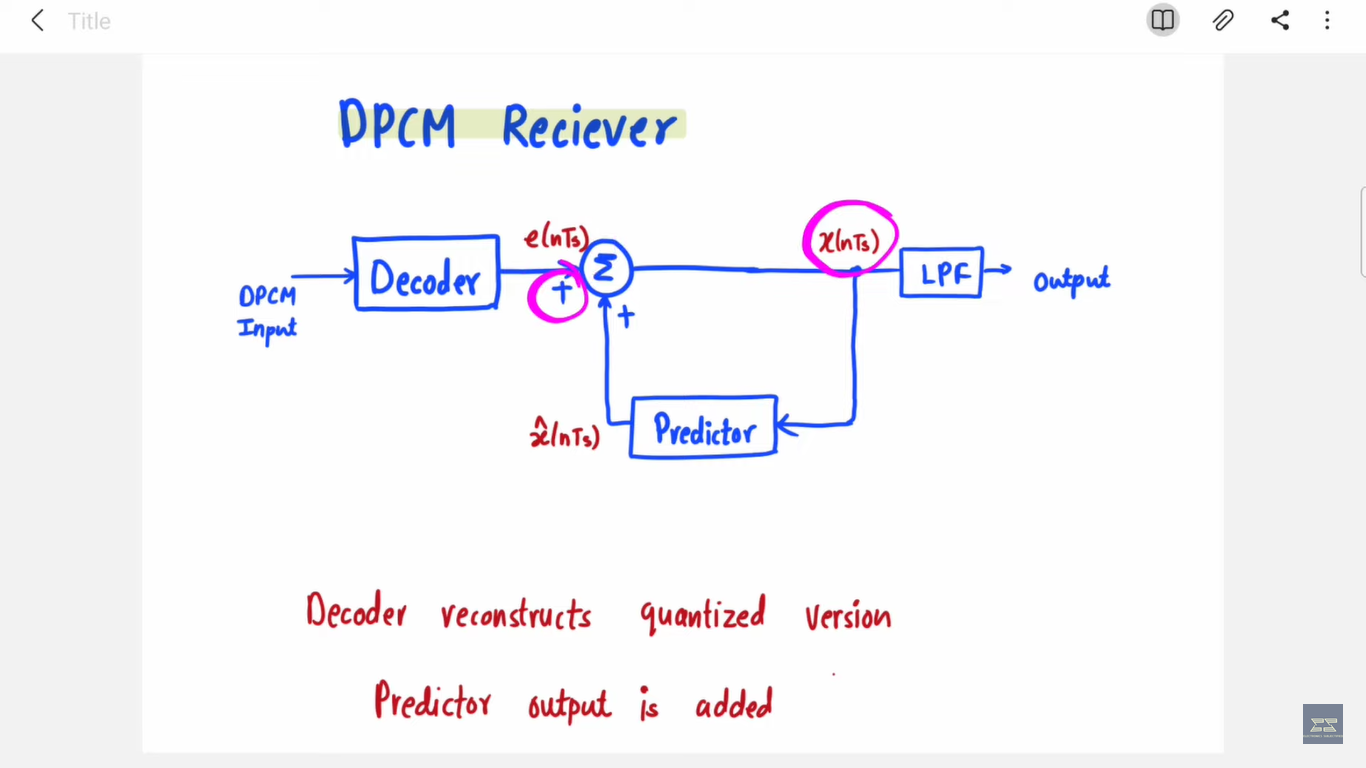 Title
DPCM Reciever
e(nTs)
x(nTs)
Decoder
+
Σ
LPF
DPCM
Input
Output
+
x̂(nTs)
Predictor
Decoder reconstructs quantized version
Predictor output is added